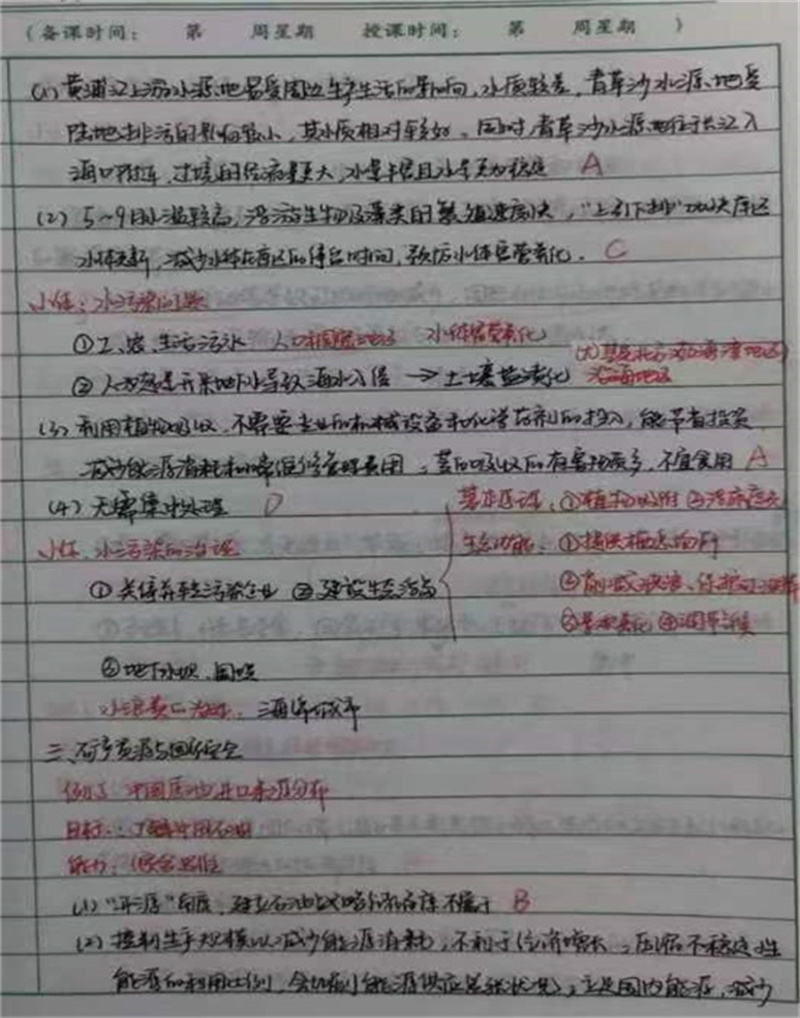 (备课时间： 第 周星期 授课时间： 第 周星期 )
(1) 黄浦江上游水源地易受周边生产生活的影响，水质较差，青草沙水源地受
陆地排污的影响较小，其水质相对较好。同时，青草沙水源地位于长江入
海口附近，过境的径流量更大，水量丰富且水量更为稳定 A
(2) 5~9月水温较高，浮游生物及藻类的繁殖速度快，“上引下排”加快库区
水体更新，减少水体在库区的停留时间，预防水体富营养化. C
小结：水污染问题
①工、农、生活污水 人口稠密地区 水体富营养化
②人为过量开采地下水导致海水入侵 → 土壤盐渍化 沿海地区
(3) 利用植物吸收，不需要专业的机械设备和化学药剂的投入，能节省投资
减少能源消耗和降低管理费用；茎的吸收的有害物质多，不宜食用 A
(4) 无需集中处理 D
小结：水污染的治理
①关停并转污染企业 ②建设生态浮岛
基本原理：①植物吸附
生态功能：①提供栖息场所
②削减波浪、保护
③景观美化 ④调节气候
③地下水坝、回灌
海绵城市
三、矿产资源与国家安全
例3 中国原油进口来源分布
目标：了解中国石油
能力：综合思维
(1) “开源”角度，建立石油战略储备库不属于 B
(2) 控制生产规模以减少能源消耗，不利于经济增长；压缩不稳定性
能源的利用比例，会加剧能源供应紧张状况；立足国内能源，减少